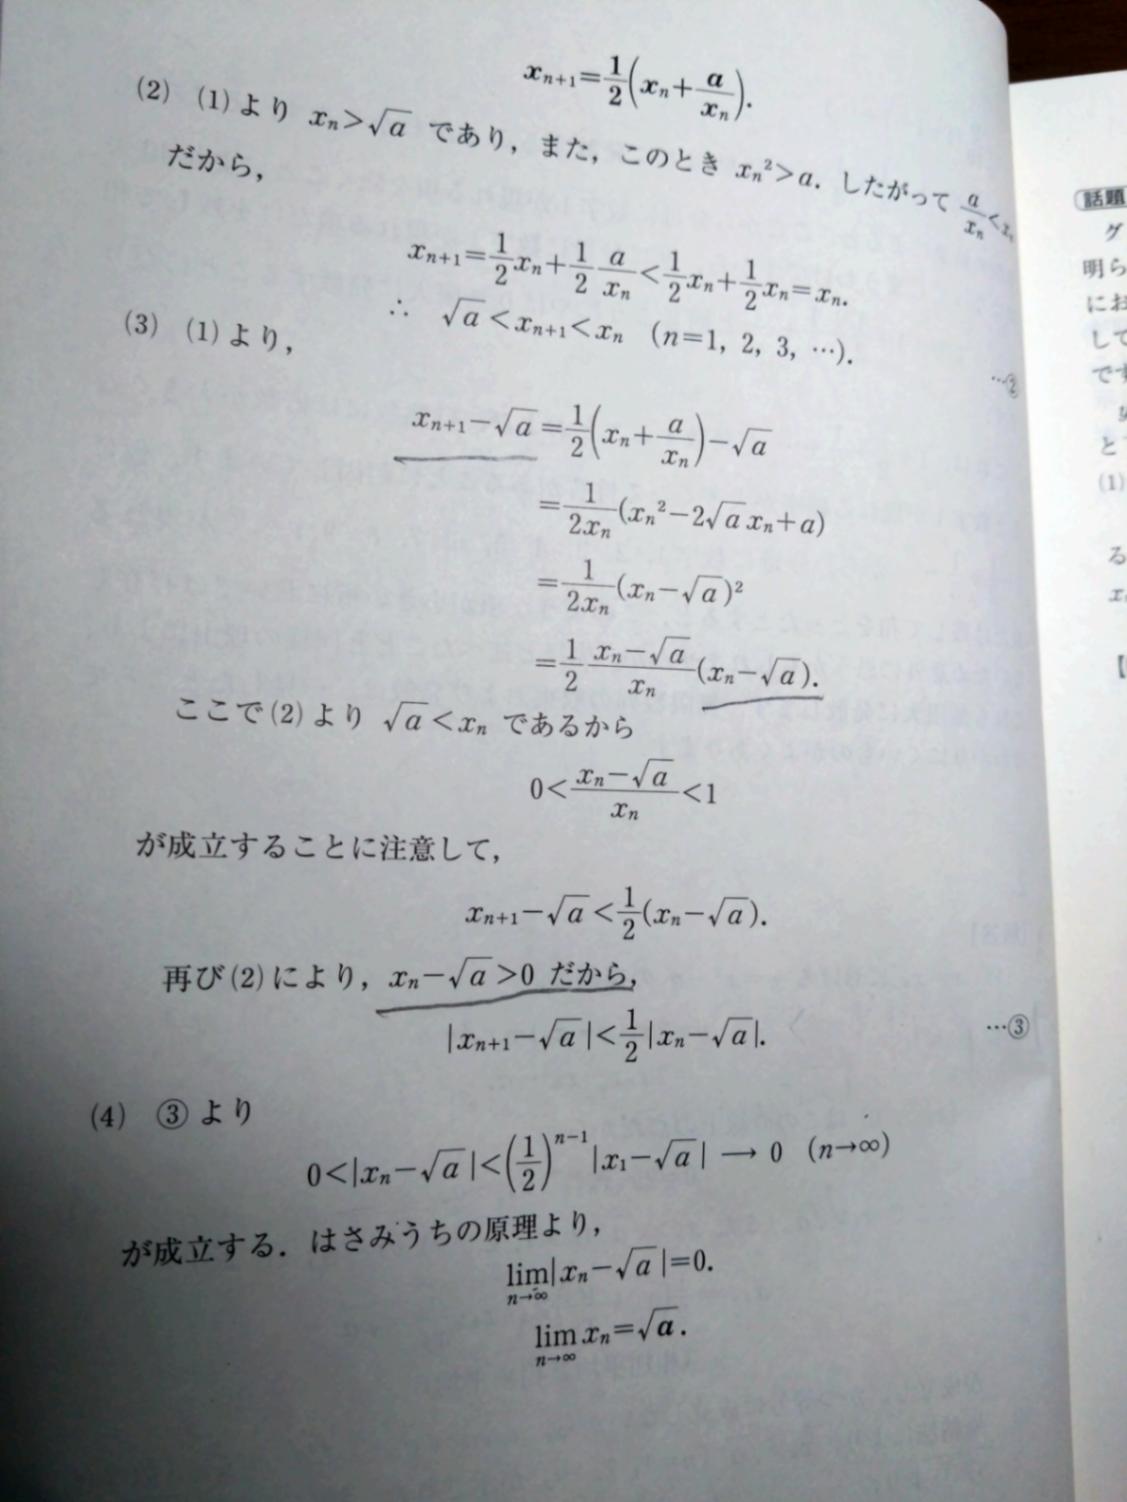 x_{n+1}=\frac{1}{2}\left(x_n+\frac{a}{x_n}\right).
(2) (1)より x_n>√a であり，また，このとき x_n²>a．したがって \frac{a}{x_n}<x_n
だから，
x_{n+1}=\frac{1}{2}x_n+\frac{1}{2}\frac{a}{x_n}<\frac{1}{2}x_n+\frac{1}{2}x_n=x_n.
∴ √a<x_{n+1}<x_n (n=1, 2, 3, …). …②
(3) (1)より，
x_{n+1}-√a=\frac{1}{2}\left(x_n+\frac{a}{x_n}\right)-√a
=\frac{1}{2x_n}(x_n²-2√a x_n+a)
=\frac{1}{2x_n}(x_n-√a)²
=\frac{1}{2}\frac{x_n-√a}{x_n}(x_n-√a).
ここで(2)より √a<x_n であるから
0<\frac{x_n-√a}{x_n}<1
が成立することに注意して，
x_{n+1}-√a<\frac{1}{2}(x_n-√a).
再び(2)により，x_n-√a>0 だから，
|x_{n+1}-√a|<\frac{1}{2}|x_n-√a|. …③
(4) ③より
0<|x_n-√a|<\left(\frac{1}{2}\right)^{n-1}|x_1-√a| → 0 (n→∞)
が成立する．はさみうちの原理より，
\lim_{n→∞}|x_n-√a|=0.
\lim_{n→∞}x_n=√a.
話題
グ
明ら
にお
して
です
と
(1)
る